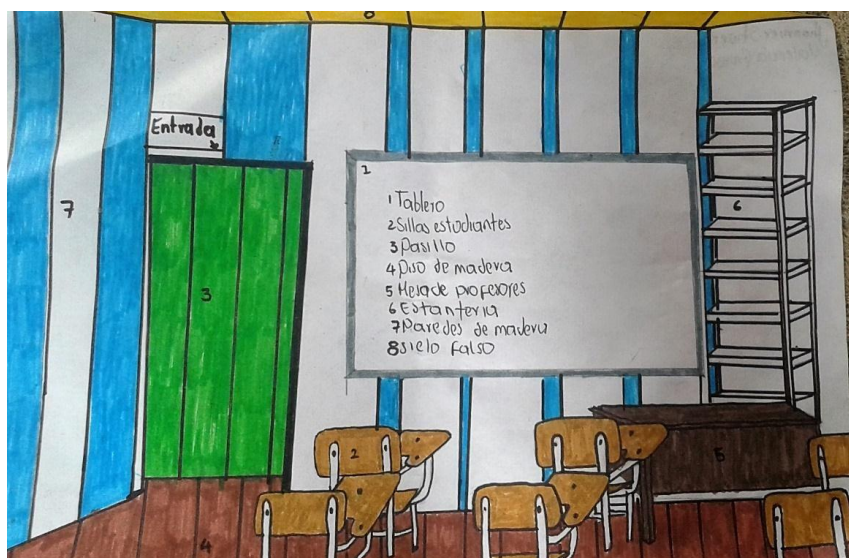 8
Entrada
7
3
4
1
1 Tablero
2 Sillas estudiantes
3 Pasillo
4 Piso de madera
5 Mesa de profesores
6 Estanteria
7 Paredes de madera
8 sielo falso
6
2
5